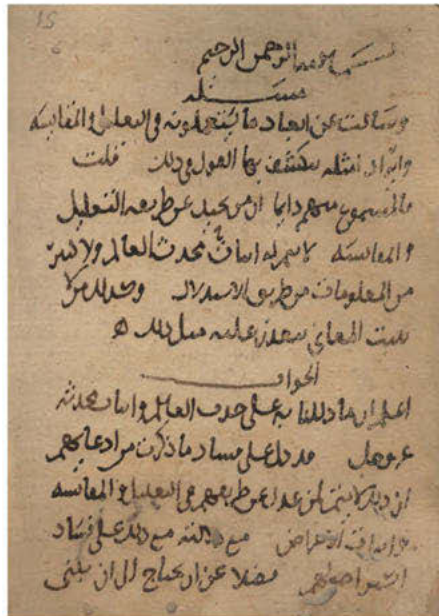 15
بسم الله الرحمن الرحيم
مسئله
وسالت عن ايجاد ما يستعملونه في التعليل والمقايسه
وايراد امثله ينكشف بها القول في ذلك قلت
فالمسموع منهم دايما ان من يحيد عن طريقه التعليل
والمقايسه لا يتم له اثبات محدث العالم ولا كثير
من المعلومات من طريق الاستدلال وكذلك من لا
يثبت المعاني يتعذر عليه مثل ذلك
الجواب
اعلم ان ما دللنا به على حدث العالم واثبات محدثه
عز وجل قد دل على فساد ما ذكرت من ادعايهم
ان ذلك لا يثبت لمن عدل عن طريقهم في التعليل والمقايسه
واثبات الاعراض مع دلالته مع ذلك على فساد
اصولهم فضلا عن ان يحتاج الى ان يبنى